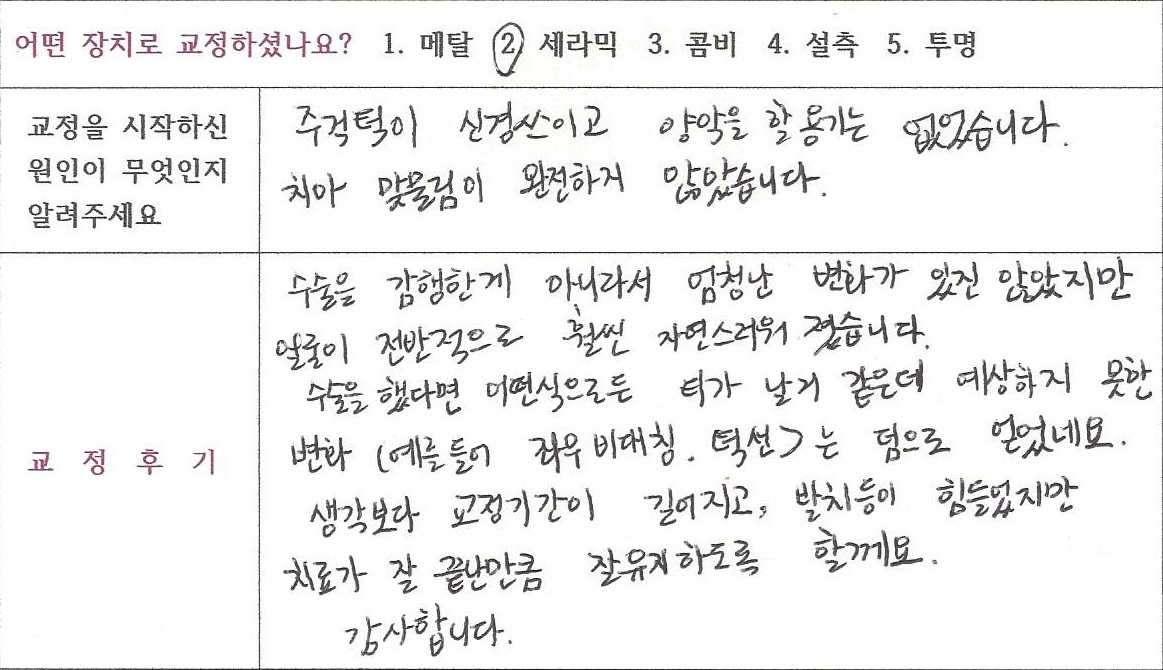 어떤 장치로 교정하셨나요? 1. 메탈 2 세라믹 3. 콤비 4. 설측 5. 투명
교정을 시작하신
원인이 무엇인지
알려주세요
주걱턱이 신경쓰이고 양악을 할 용기는 없었습니다.
치아 맞물림이 완전하지 않았습니다.
교 정 후 기
수술을 감행한게 아니라서 엄청난 변화가 있진 않았지만
얼굴이 전반적으로 훨씬 자연스러워 졌습니다.
수술을 했다면 어떤식으로든 티가 날거 같은데 예상하지 못한
변화 (예를들어 좌우 비대칭. 턱선)는 덤으로 얻었네요.
생각보다 교정기간이 길어지고, 발치등이 힘들었지만
치료가 잘 끝난만큼 잘유지하도록 할께요.
감사합니다.